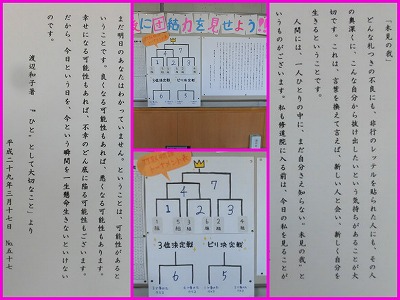 「未見の我」
どんな札つきの不良にも、非行のレッテルを貼られた人にも、その人
の奥深くに、こんな自分から抜け出したいという気持ちがあることが大
切です。これは、言葉を換えて言えば、新しい人と会い、新しく自分を
生きるということです。
人間には、一人ひとりの中に、まだ自分さえ知らない〝未見の我〟と
いうものがございます。私も修道院に入る前は、今日の私を見ることが
に団結力を見せよう!!
4 7
1 2 3
3位決定戦 ビリ決定戦
6 5
4 7
1 2 3
3位決定戦 ビリ決定戦
6 5
まだ明日のあなたはわかっていません。ということは、可能性があると
いうことです。良くなる可能性もあれば、悪くなる可能性もあります。
幸せになる可能性もあれば、不幸のどん底に陥る可能性もございます。
だから、今日という日を、今という瞬間を一生懸命生きないといけない
のです。
渡辺和子著 『〝ひと〟として大切なこと』より
平成二十九年三月十七日 №五十七